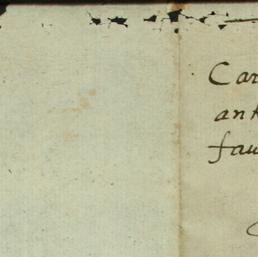 Car
ant
fau